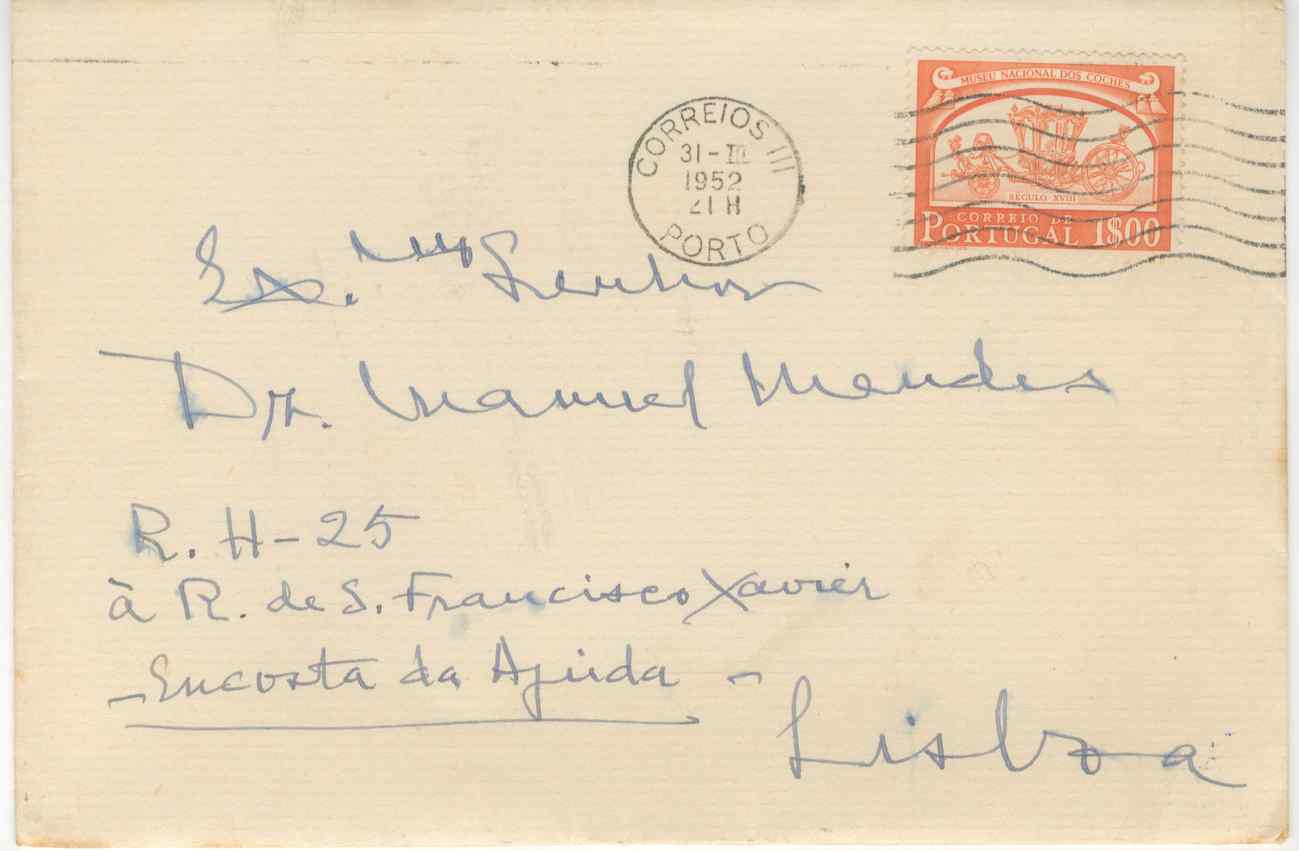 MUSEU NACIONAL DOS COCHES
SECULO XVIII
CORREIO DE
PORTUGAL 1$00
CORREIOS III
31-III
1952
21 H
PORTO
Ex.mo Senhor
Dr. Manuel Mendes
R. H-25
à R. de S. Francisco Xavier
- Encosta da Ajuda -
Lisboa